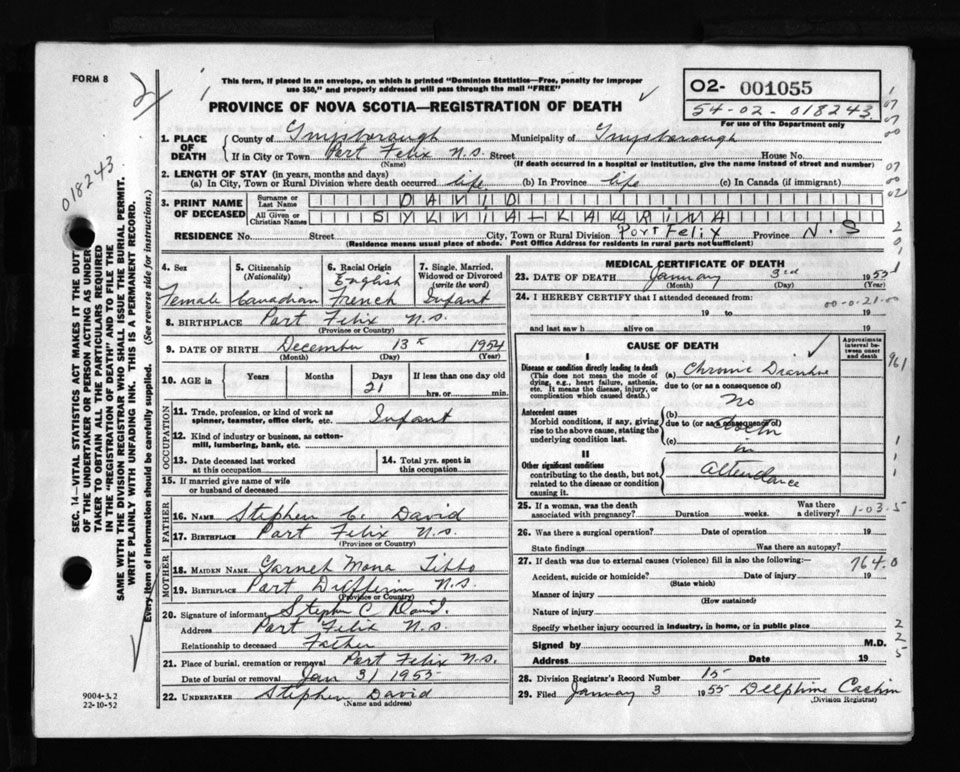 FORM 8
2
This form, if placed in an envelope, on which is printed "Dominion Statistics—Free, penalty for improper
use $50," and properly addressed will pass through the mail "FREE"
PROVINCE OF NOVA SCOTIA—REGISTRATION OF DEATH
02- 001055
54-02-018243
For use of the Department only
018243
SEC. 14—VITAL STATISTICS ACT MAKES IT THE DUTY
OF THE UNDERTAKER OR PERSON ACTING AS UNDER-
TAKER TO OBTAIN ALL THE PARTICULARS REQUIRED
IN THE "REGISTRATION OF DEATH" AND TO FILE THE
SAME WITH THE DIVISION REGISTRAR WHO SHALL ISSUE THE BURIAL PERMIT.
WRITE PLAINLY WITH UNFADING INK. THIS IS A PERMANENT RECORD.
Every item of Information should be carefully supplied. (See reverse side for instructions.)
1. PLACE OF DEATH
County of Guysborough Municipality of Guysborough
If in City or Town Port Felix N.S. Street House No.
(Name) (If death occurred in a hospital or institution, give the name instead of street and number)
2. LENGTH OF STAY (in years, months and days)
(a) In City, Town or Rural Division where death occurred life (b) In Province life (c) In Canada (if immigrant)
3. PRINT NAME OF DECEASED
Surname or Last Name DAVID
All Given or Christian Names SYLVIA
RESIDENCE No. Street City, Town or Rural Division Port Felix Province N.S
(Residence means usual place of abode. Post Office Address for residents in rural parts not sufficient)
4. Sex Female
5. Citizenship (Nationality) Canadian
6. Racial Origin English French
7. Single, Married, Widowed or Divorced (write the word) Infant
8. BIRTHPLACE Port Felix N.S.
(Province or Country)
9. DATE OF BIRTH December 13 1954
(Month) (Day) (Year)
10. AGE in Years Months Days 21 If less than one day old hrs. or min.
OCCUPATION
11. Trade, profession, or kind of work as
spinner, teamster, office clerk, etc. Infant
12. Kind of industry or business, as cotton-
mill, lumbering, bank, etc.
13. Date deceased last worked
at this occupation
14. Total yrs. spent in
this occupation
15. If married give name of wife
or husband of deceased
FATHER
16. NAME Stephen C. David
17. BIRTHPLACE Port Felix N.S.
(Province or Country)
MOTHER
18. MAIDEN NAME Garnet Mona Tibbo
19. BIRTHPLACE Port Dufferin N.S.
(Province or Country)
20. Signature of informant Stephen C David.
Address Port Felix N.S.
Relationship to deceased Father
21. Place of burial, cremation or removal Port Felix N.S.
Date of burial or removal Jan 31 1955
22. UNDERTAKER Stephen David
(Name and address)
9004-3.2
22-10-52
MEDICAL CERTIFICATE OF DEATH
23. DATE OF DEATH January 3rd 1955
(Month) (Day) (Year)
24. I HEREBY CERTIFY that I attended deceased from: 00-0-21-00
19 to 19
and last saw h alive on 19
CAUSE OF DEATH
Approximate interval between onset and death
Disease or condition directly leading to death
(This does not mean the mode of
dying, e.g., heart failure, asthenia,
etc. It means the disease, injury, or
complication which caused death.)
(a) Chronic
due to (or as a consequence of)
No
Antecedent causes
Morbid conditions, if any, giving
rise to the above cause, stating the
underlying condition last.
(b)
due to (or as a consequence of)
(c)
in
II
Other significant conditions
contributing to the death, but not
related to the disease or condition
causing it.
Attendance
25. If a woman, was the death
associated with pregnancy? Duration weeks. Was there
a delivery? 1-03-5
26. Was there a surgical operation? Date of operation 19
State findings Was there an autopsy?
27. If death was due to external causes (violence) fill in also the following:— 764.0
Accident, suicide or homicide? Date 19
(State which)
Manner of injury
(How sustained)
Nature of injury
Specify whether injury occurred in industry, in home, or in public place
Signed by M.D.
Address Date 19
28. Division Registrar's Record Number 15
29. Filed January 3 1955 Delphine
(Division Registrar)